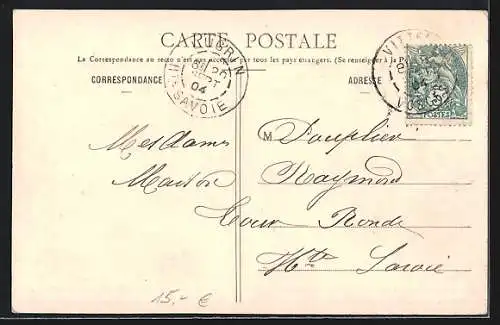 CARTE POSTALE
La Correspondance au recto n'est pas acceptée par tous les pays étrangers. (Se renseigner à la P
CORRESPONDANCE
ADRESSE
08 20
SEPT
04
SAVOIE
VITTE
04
VOS
POSTES
M
Raymond
Mesdames
Cour Ronde
Hte Savoie
15,- €